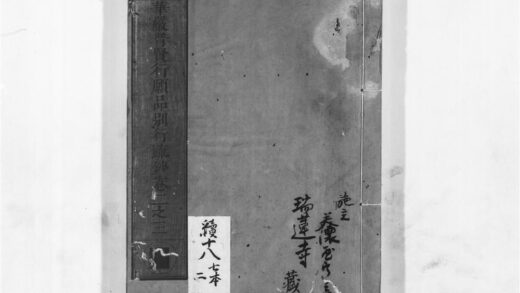 華嚴普賢行願品別行疏鈔卷二之三
施主
瑞蓮寺 藏
續十八
七本
二